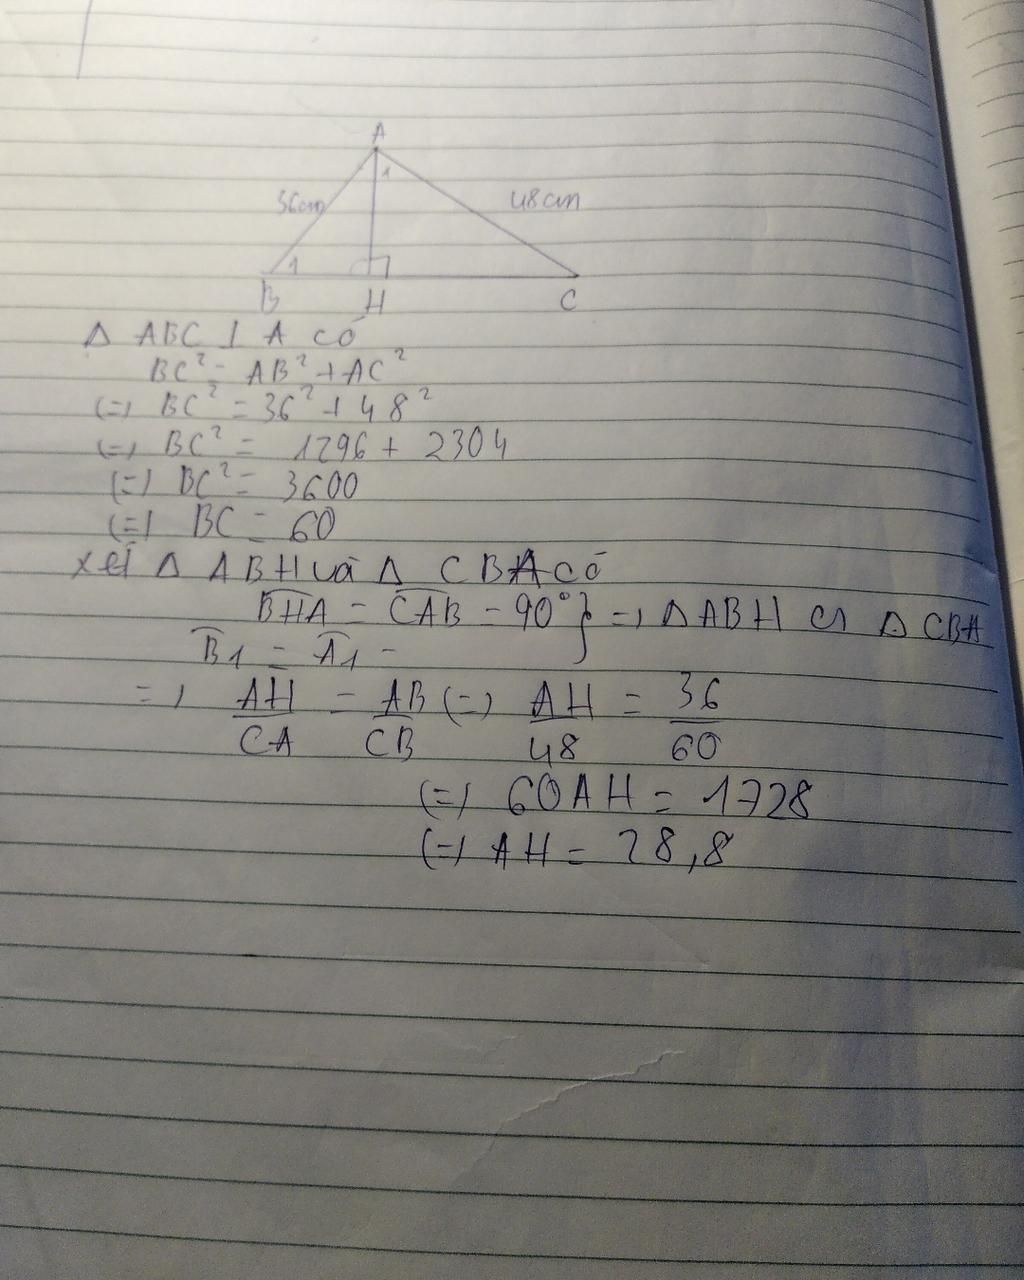 A
1
36cm
48cm
1
B H C
Δ ABC ⊥ A có
BC² = AB² + AC²
(=) BC² = 36² + 48²
(=) BC² = 1296 + 2304
(=) BC² = 3600
(=) BC = 60
xét Δ ABH và Δ CBA có
BHA = CAB = 90° } =) Δ ABH ∽ Δ CBA
B1 = A1 -
=) AH/CA = AB/CB (=) AH/48 = 36/60
(=) 60AH = 1728
(=) AH = 28,8